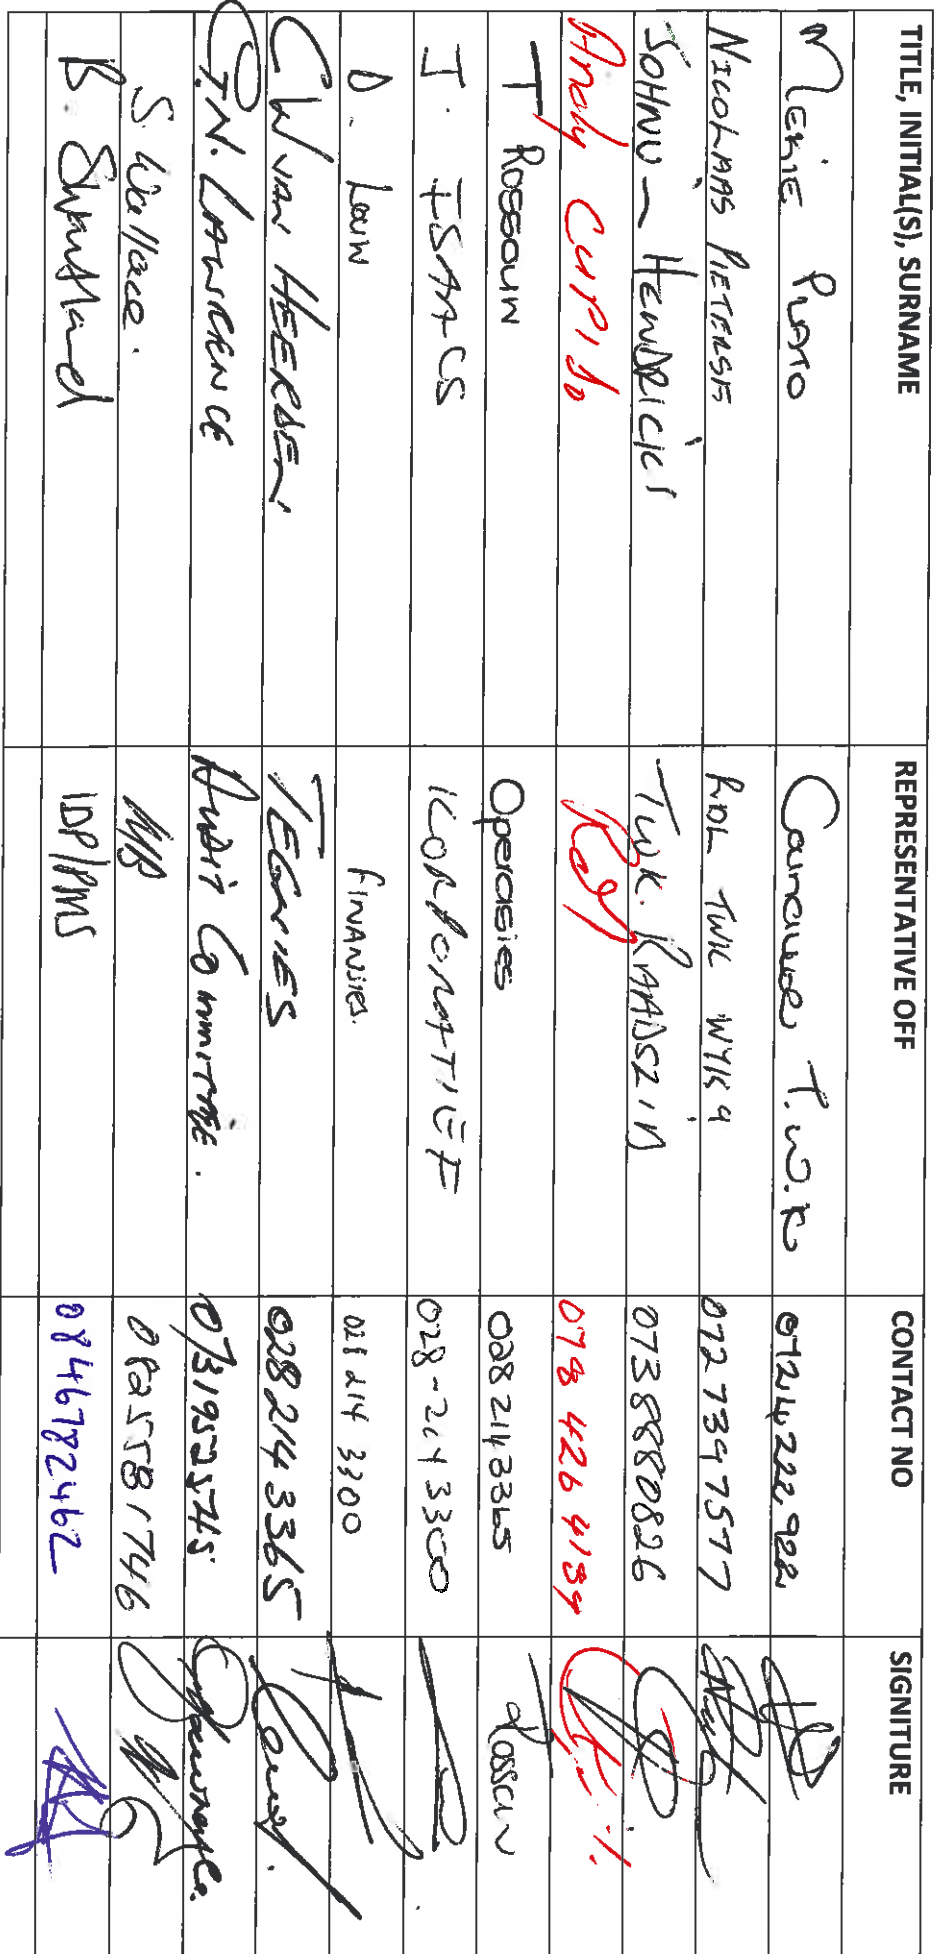 TITLE, INITIAL(S), SURNAME REPRESENTATIVE OFF CONTACT NO SIGNITURE
MEKIE PLATO T.W.K
NICOLAAS PIETERSE RDL TWK WYK 9 0727397577
HENDRICKS TWK. RAADSLID 0738880826
Andy CUPIDO 078 426 4139
T ROSSOUW Operasies 028 214 3365
J. ISAACS KORPORATIEF 028-214 3300
D. Louw FINANSIES. 028 214 3300
C W VAN HEERDEN TEGNIES 028 214 3365
J.N. LAWRENCE AUDIT COMMITTEE. 0731952545
S. Wallace. MB 0825581746
B. Swartland IDP/PMS 0846782462